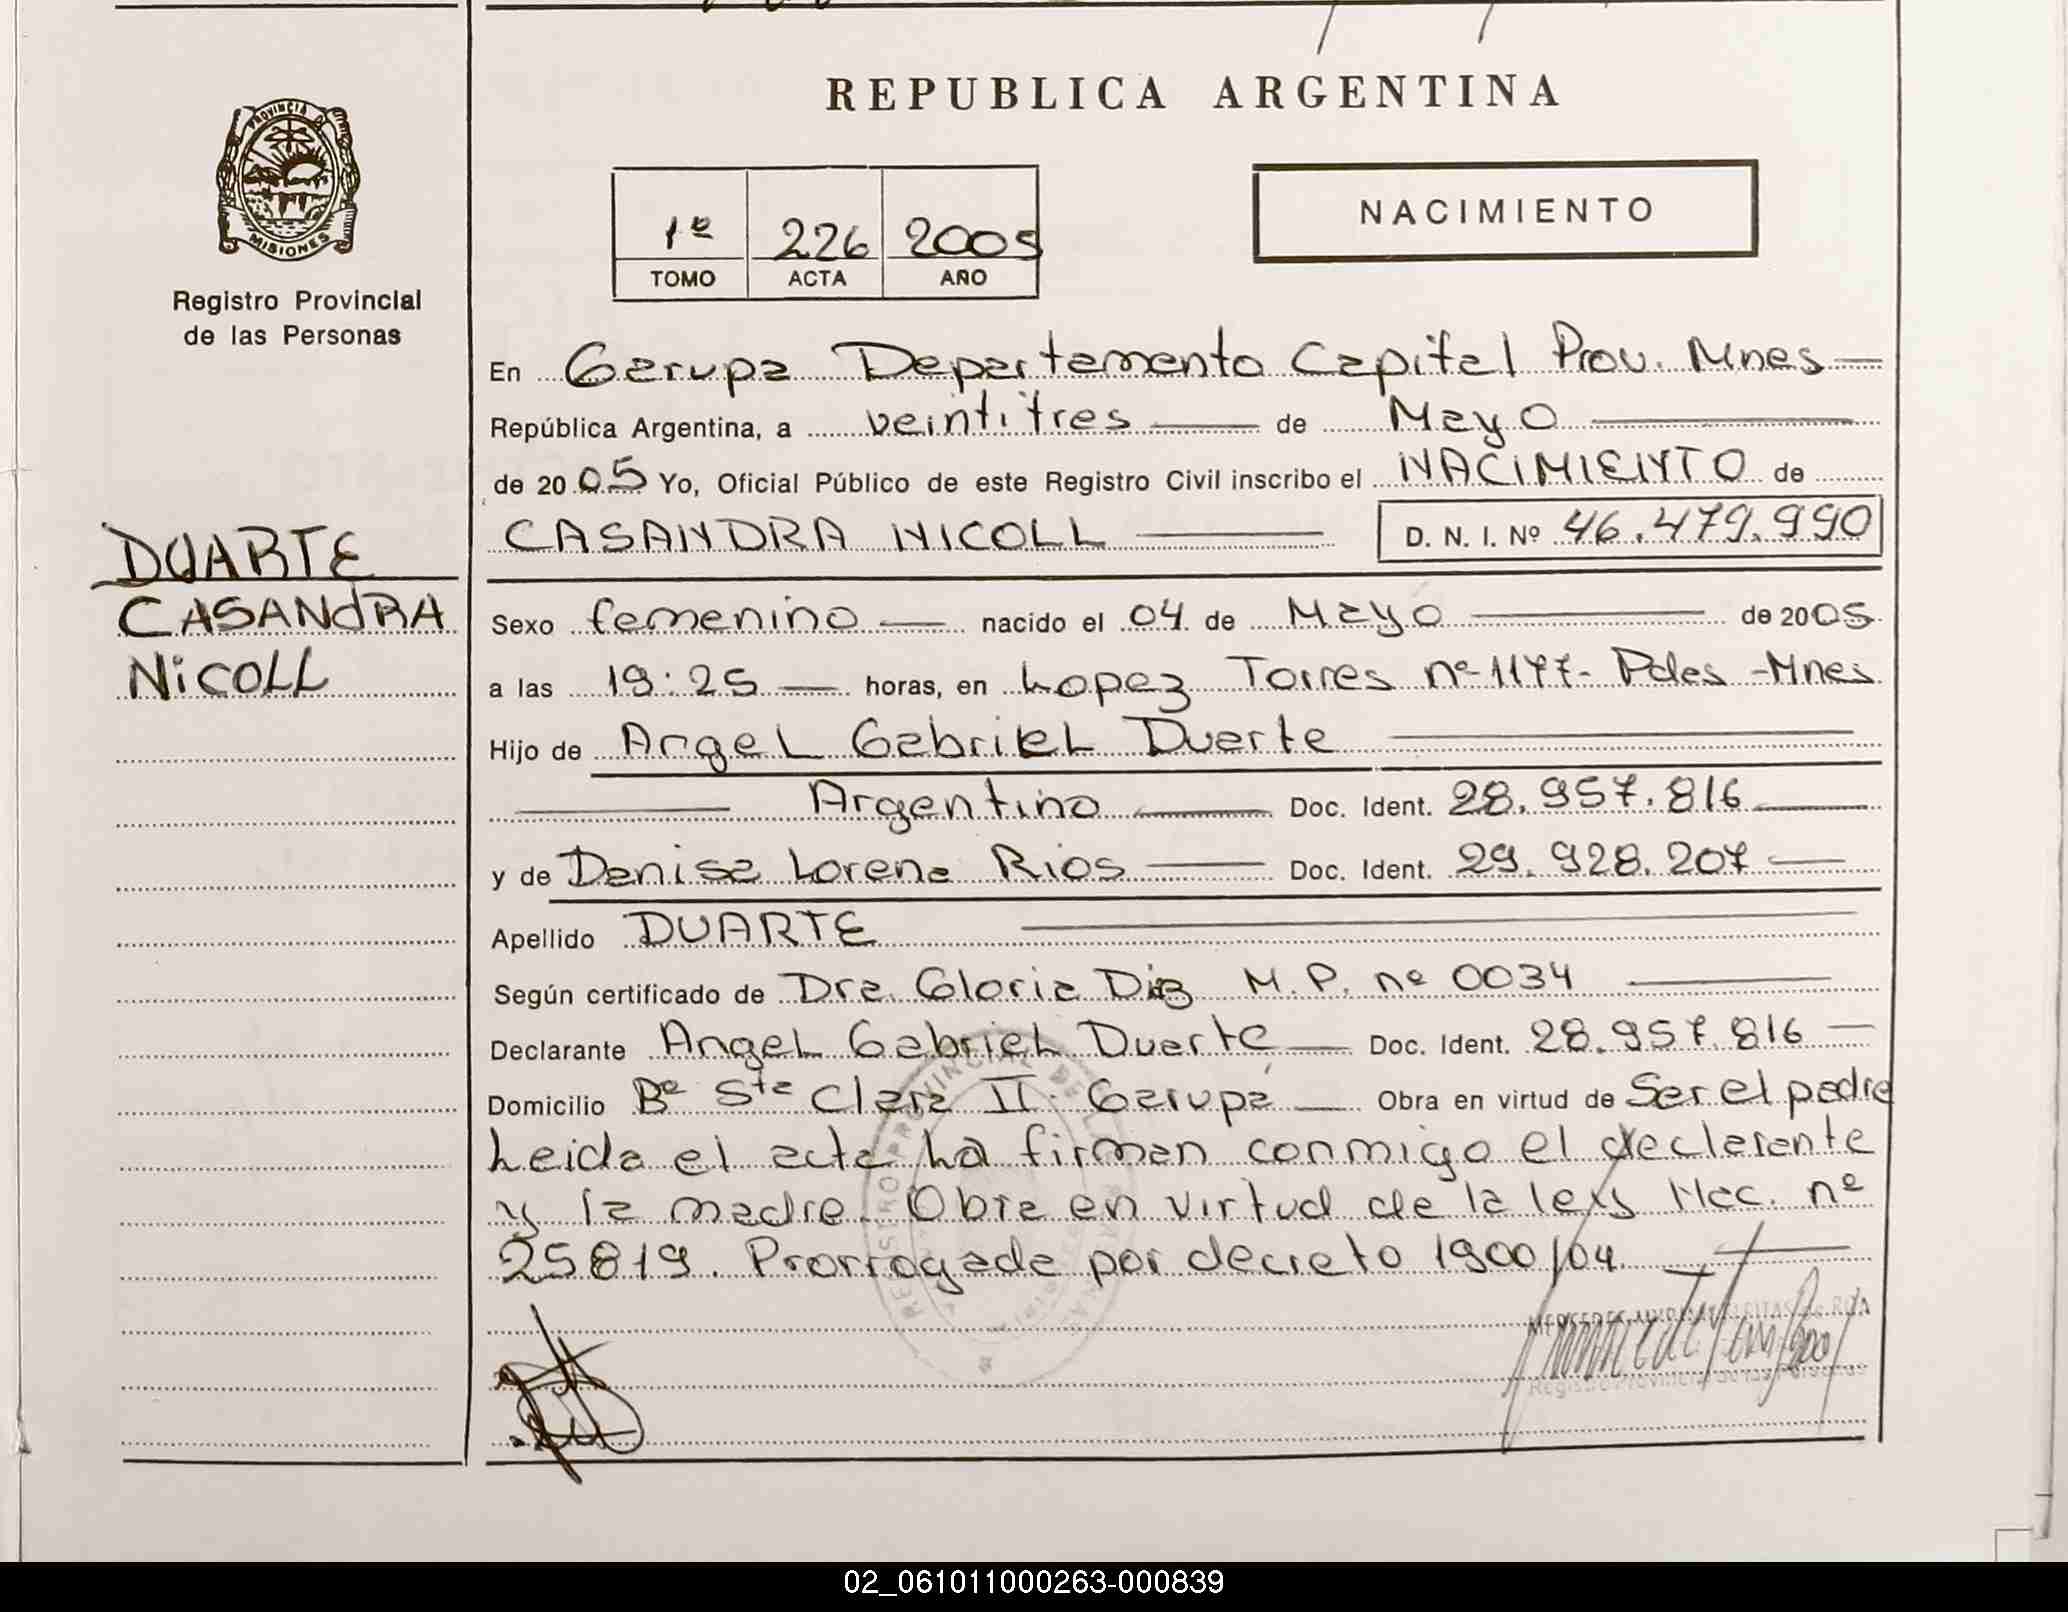 REPUBLICA ARGENTINA
PROVINCIA DE
MISIONES
Registro Provincial
de las Personas
1º 226 2005
TOMO ACTA AÑO
NACIMIENTO
En Garupa Departamento Capital Prov. Mnes
República Argentina, a veintitres de Mayo
de 2005 Yo, Oficial Público de este Registro Civil inscribo el NACIMIENTO de
DUARTE
CASANDRA
NICOLL
CASANDRA NICOLL D. N. I. Nº 46.479.990
Sexo femenino nacido el 04 de Mayo de 2005
a las 19:25 horas, en Lopez Torres nº 1177- Pdas - Mnes
Hijo de Angel Gabriel Duarte
Argentino Doc. Ident. 28.957.816
y de Danisa Lorena Rios Doc. Ident. 29.928.207
Apellido DUARTE
Según certificado de Dra. Gloria Diz M.P. nº 0034
Declarante Angel Gabriel Duarte Doc. Ident. 28.957.816
Domicilio Bº Sta Clara II Garupá Obra en virtud de Ser el padre
Leida el acta La firman conmigo el declarante
y la madre. Obra en virtud de la ley Nac. nº
25819. Prorrogada por decreto 1900/04.
REGISTRO PROVINCIAL DE LAS PERSONAS
Registro Provincial de las Personas
02_061011000263-000839